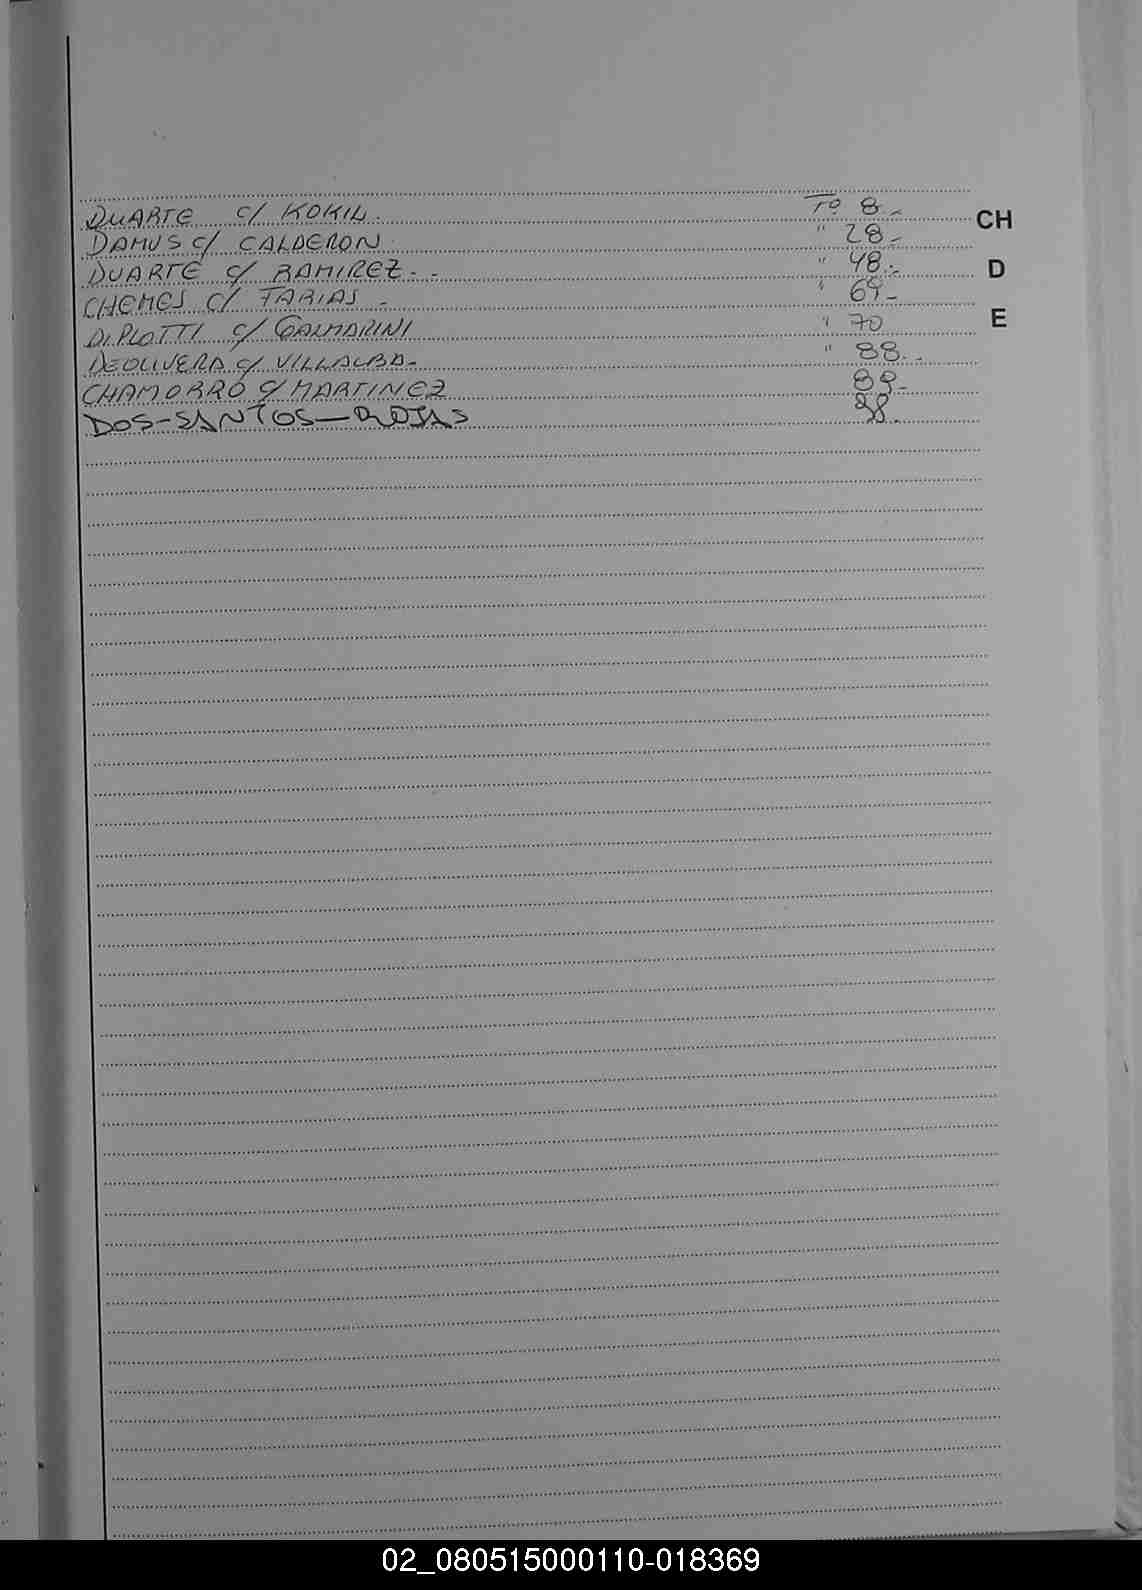 DUARTE c/ KOKIL. Fo 8.- CH
DAMUS c/ CALDERON. " 28.-
DUARTE c/ RAMIREZ. - " 48.- D
CHEMES c/ FARIAS - " 69.-
DIPLOTTI c/ GALMARINI " 70 E
DEOLIVERA c/ VILLALBA- " 88.-
CHAMORRO c/ MARTINEZ 89.-
DOS-SANTOS-ROJAS 98.
02_080515000110-018369